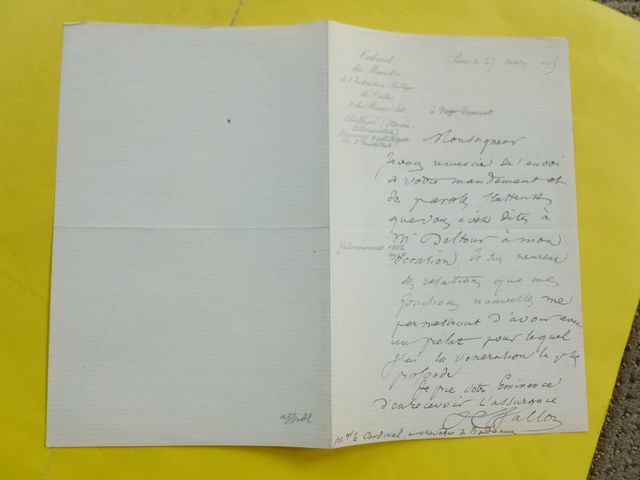 Cabinet
du Ministre
de l'Instruction Publique
des Cultes
& des Beaux-Arts
Paris le 27 Mars 1875
à Mgr Donnet
Wallon (Henri,
Alexandre)
homme politique
Valenciennes 1812
Monseigneur
Je vous remercie de l'envoi
de votre mandement et
de parole flatteuses
que vous avez dites à
Mr Deltour à mon
occasion. Je suis heureux
des relations que mes
fonctions nouvelles me
permettront d'avoir avec
un prélat pour lequel
j'ai la vénération la plus
profonde
Je prie Votre Eminence
d'en recevoir l'assurance
H Wallon
Mgr le Cardinal archevêque de Bordeaux